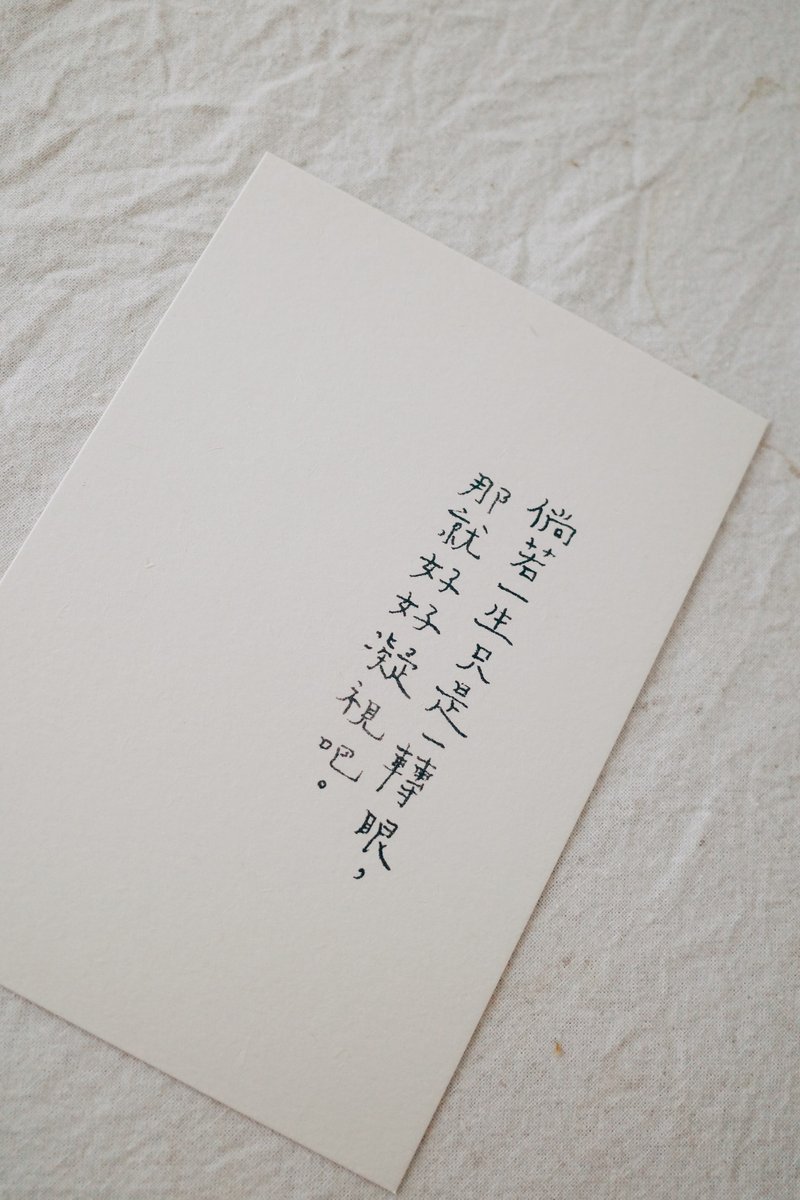 倘若一生只是一轉眼，
那就好好凝視吧。